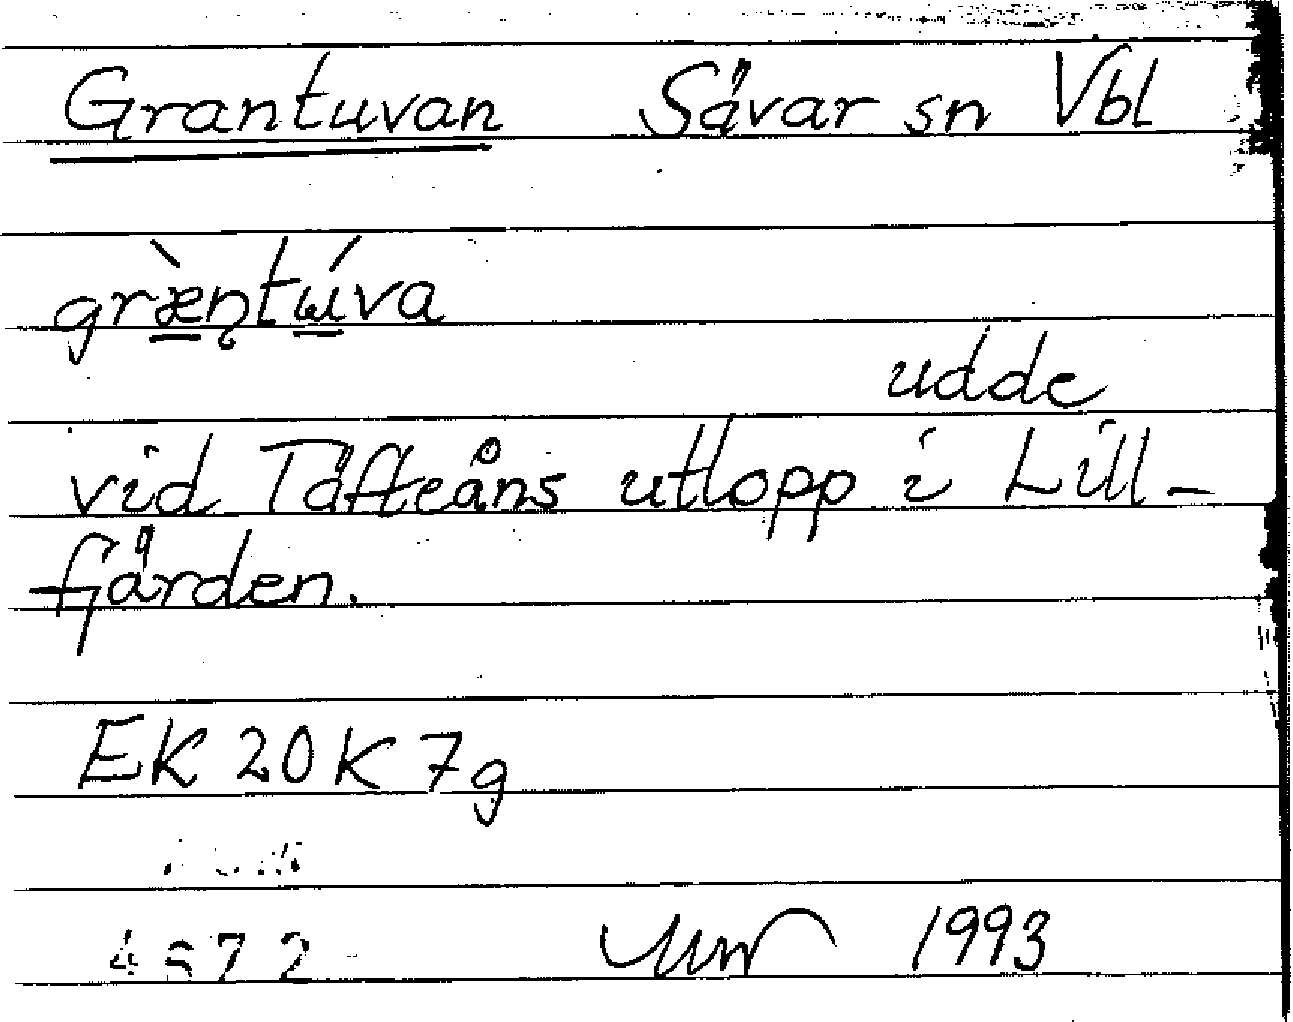 Grantuvan Sävar sn Vbl
græ̀ntɯ́va
udde
vid Täfteåns utlopp i Lill-
fjärden.
EK 20K 7g
1993